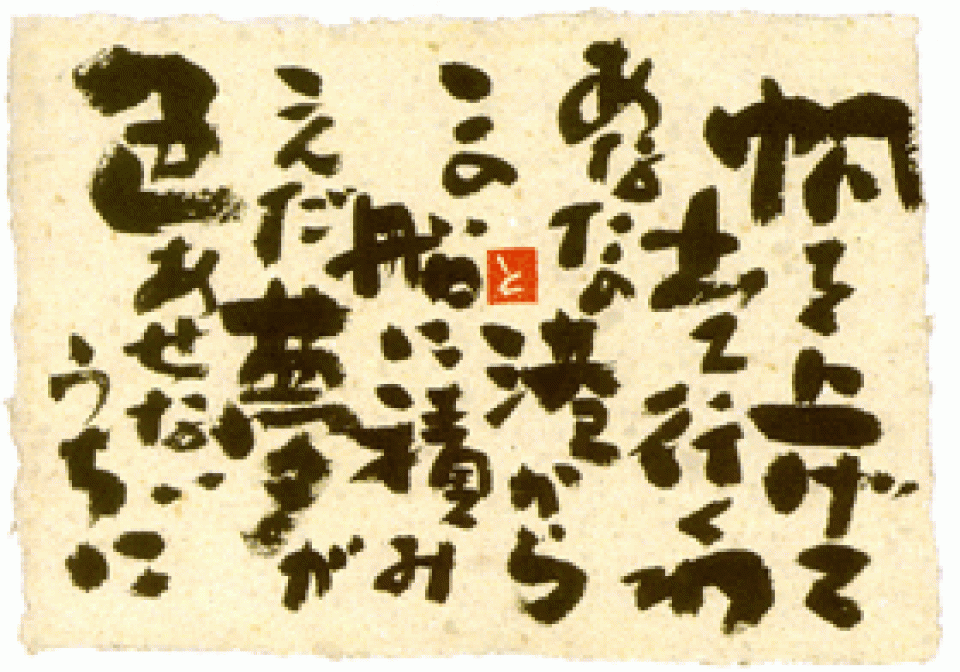 帆を上げて
出て行くわ
あなたの
港から
この船に積み
こんだ夢が
色あせない
うちに
と